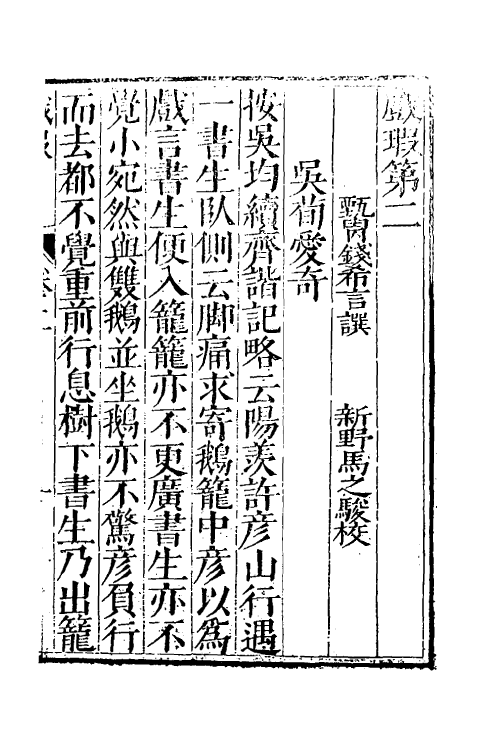 戲瑕第二
甄冑錢希言譔 新野馬之駿校
吳荀愛奇
按吳均續齊諧記略云陽羨許彥山行遇
一書生臥側云脚痛求寄鵝籠中彥以爲
戲言書生便入籠籠亦不更廣書生亦不
覺小宛然與雙鵝並坐鵝亦不驚彥負行
而去都不覺重前行息樹下書生乃出籠
戲瑕 卷二 一